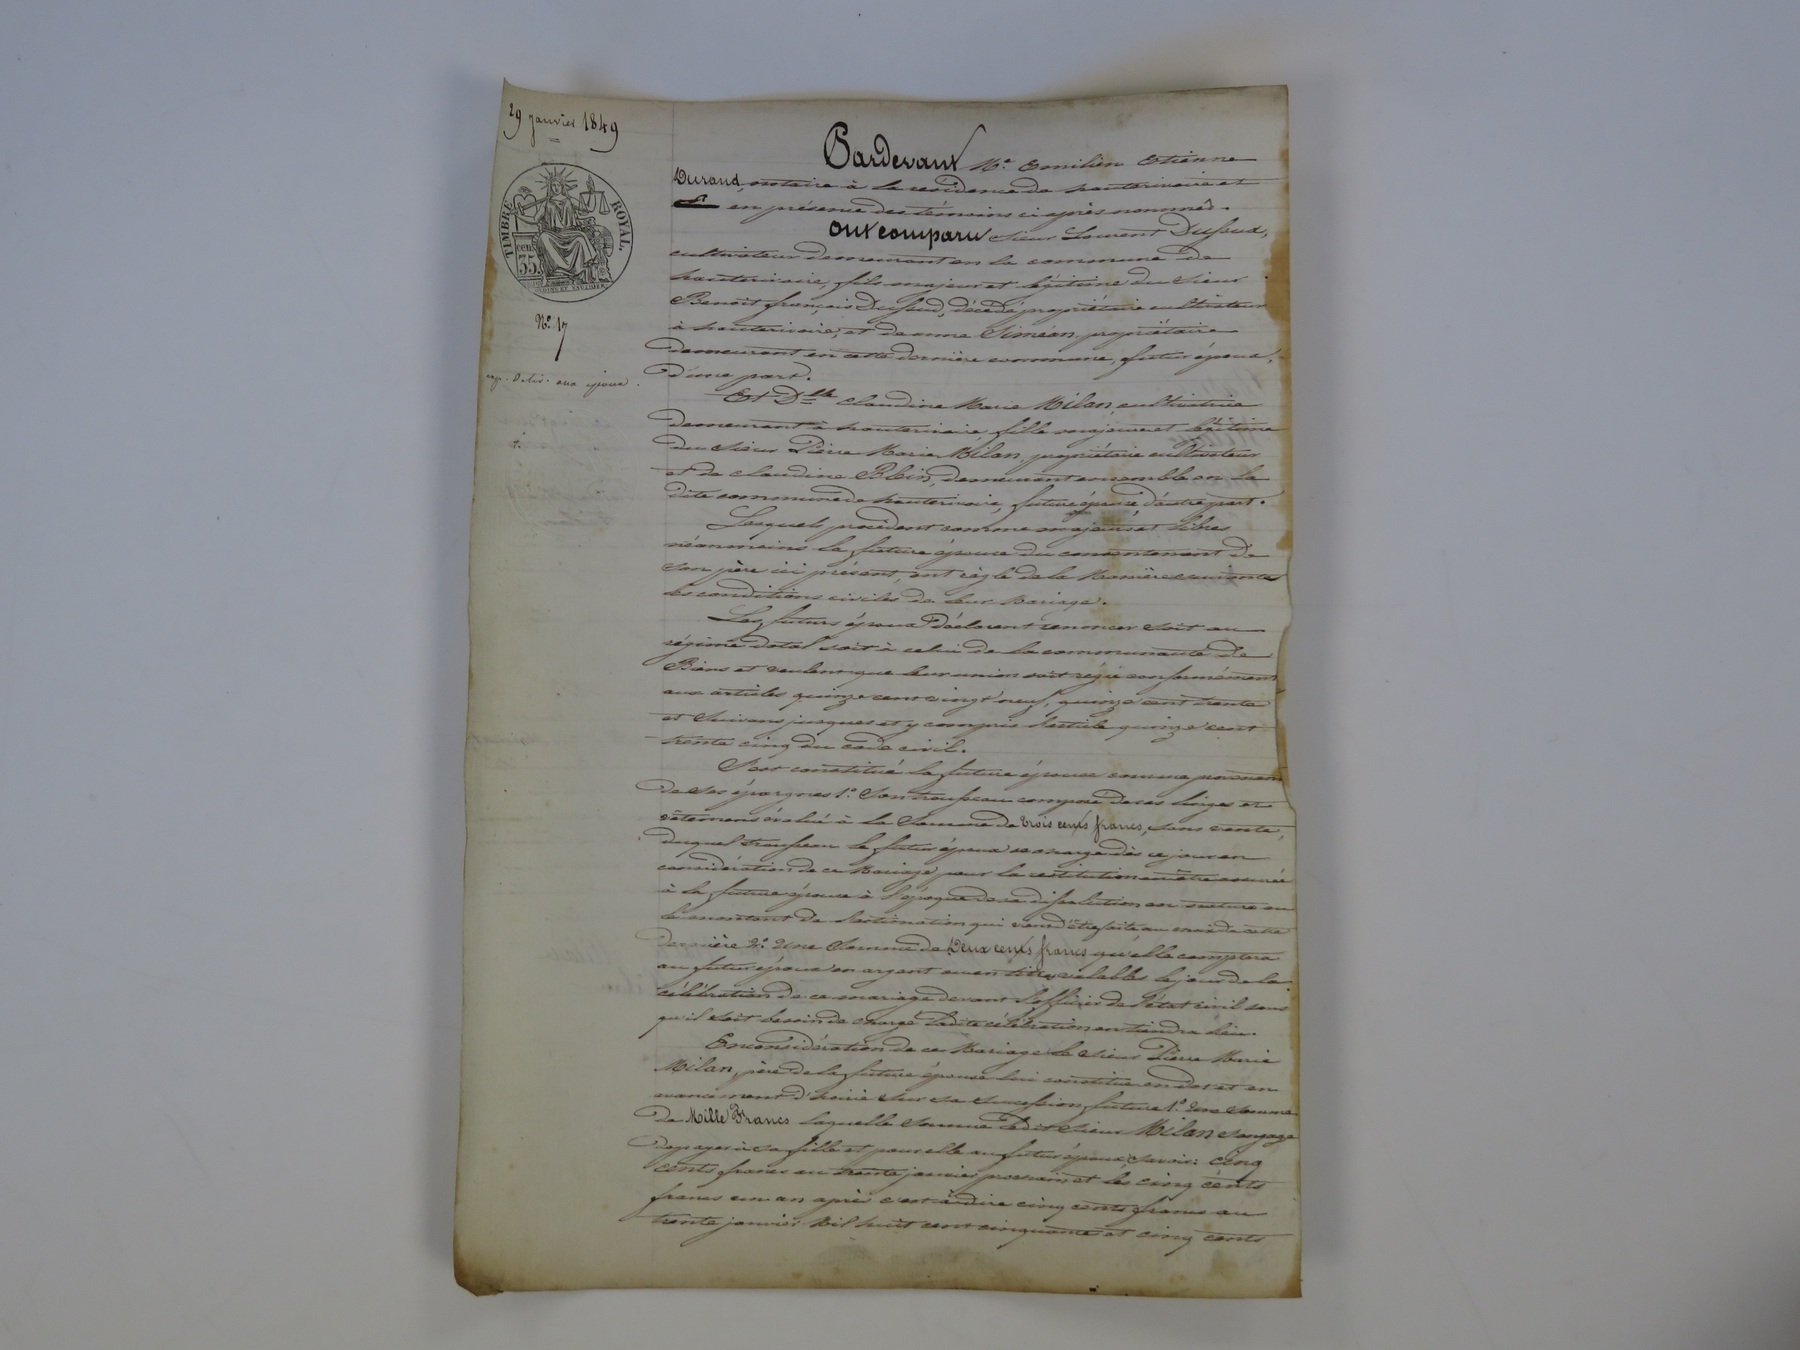 29 janvier 1849
TIMBRE ROYAL.
cen.
35.
N.° 17
exp. Déliv. aux époux.
Pardevant M.e Emilien Etienne
Durand, notaire à la residence de hauterivoire et
en présence des témoins ci après nommés.
Ont comparu Sieur Laurent Dussud,
cultivateur demeurant en la commune de
hauterivoire, fils majeur et légitime du Sieur
Benoit françois Dussud, décédé propriétaire cultivateur
à hauterivoire, et de anne Siméan, propriétaire
demeurant en cette dernière commune, futur époux,
D'une part.
Et D.lle Claudine Marie Milan, cultivatrice
demeurant à hauterivoire fille majeure et légitime
du Sieur Pierre Marie Milan, propriétaire cultivateur
et de claudine Blein, demeurant ensemble en la
dite commune de hauterivoire, future épouse, d'autre part.
Lesquels procédant comme majeurs et libres
néanmoins la future épouse du consentement de
son père ici présent, ont réglé de la Manière suivante
les conditions civiles de leur Mariage.
Les futurs époux Déclarent renoncer soit au
régime dotal soit à celui de la communauté de
Biens et veulent que leur union soit régie conformément
aux articles quinze cent vingt neuf, quinze cent trente
et Suivans jusques et y compris l'article quinze cent
trente cinq du code civil.
S'est constitué la future épouse comme provenant
de ses épargnes 1.° Son trousseau composé de ses linges et
vêtemens évalué à la Somme de trois cents francs, sans vente,
duquel trousseau le futur époux se charge dès ce jour en
considération de ce Mariage pour la restitution en être assurée
à la future épouse à l'époque de sa dissolution en nature ou
le montant de l'estimation qui vient d'être faite au choix de cette
dernière 2.° Une Somme de Deux cents francs qu'elle comptera
au futur époux en argent ou en titres valables le jour de la
célébration de ce mariage devant l'officier de l'état civil sans
qu'il soit besoin de charge ladite célébration en tiendra lieu.
En considération de ce Mariage le Sieur Pierre Marie
Milan, père de la future épouse lui constitue en dot et en
avancement d'hoirie sur sa succession future 1.° Une Somme
de Mille Francs laquelle Somme ledit Sieur Milan s'engage
de payer à sa fille et pour elle au futur époux savoir: cinq
cents francs au trente janvier prochain et les cinq cents
francs un an après c'est à dire cinq cents francs au
trente janvier Mil huit cent cinquante et cinq cents